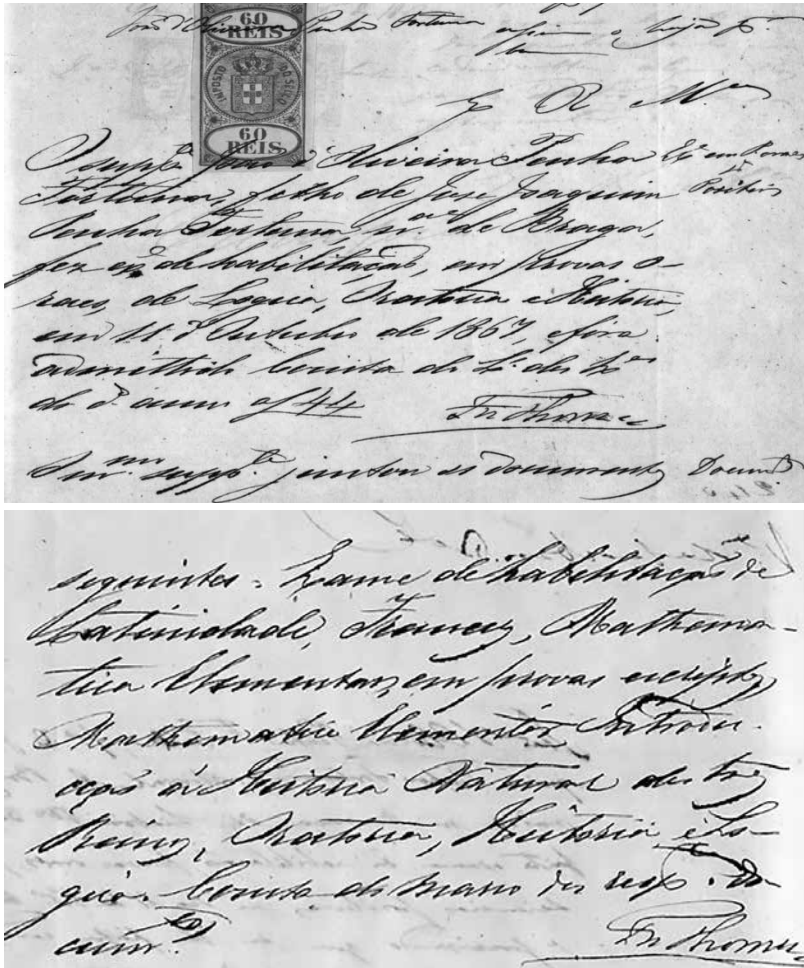 João d'Oliveira Penha Fortuna
60
REIS
IMPOSTO DO SELLO
60
REIS
E R M.ce
O supp.te João d'Oliveira Penha
Fortuna, filho de José Joaquim
Penha Fortuna, n.al de Braga,
fez ex.e de habilitação, em provas o-
raes, de Logica, Oratoria e Historia,
em 11 d'Outubro de 1867, e fora
admittido Consta do L.o dos
do d.o anno af 44
O m.mo supp.te juntou os documentos
seguintes = Exame de habilitação de
Latinidade, Francez, Mathema-
tica Elementar, em provas escriptas,
Mathematica Elementar, Introdu-
cção á Historia Natural dos tres
Reinos, Oratoria, Historia, e Lo-
gica. Consta do masso dos resp. do-
cum.tos